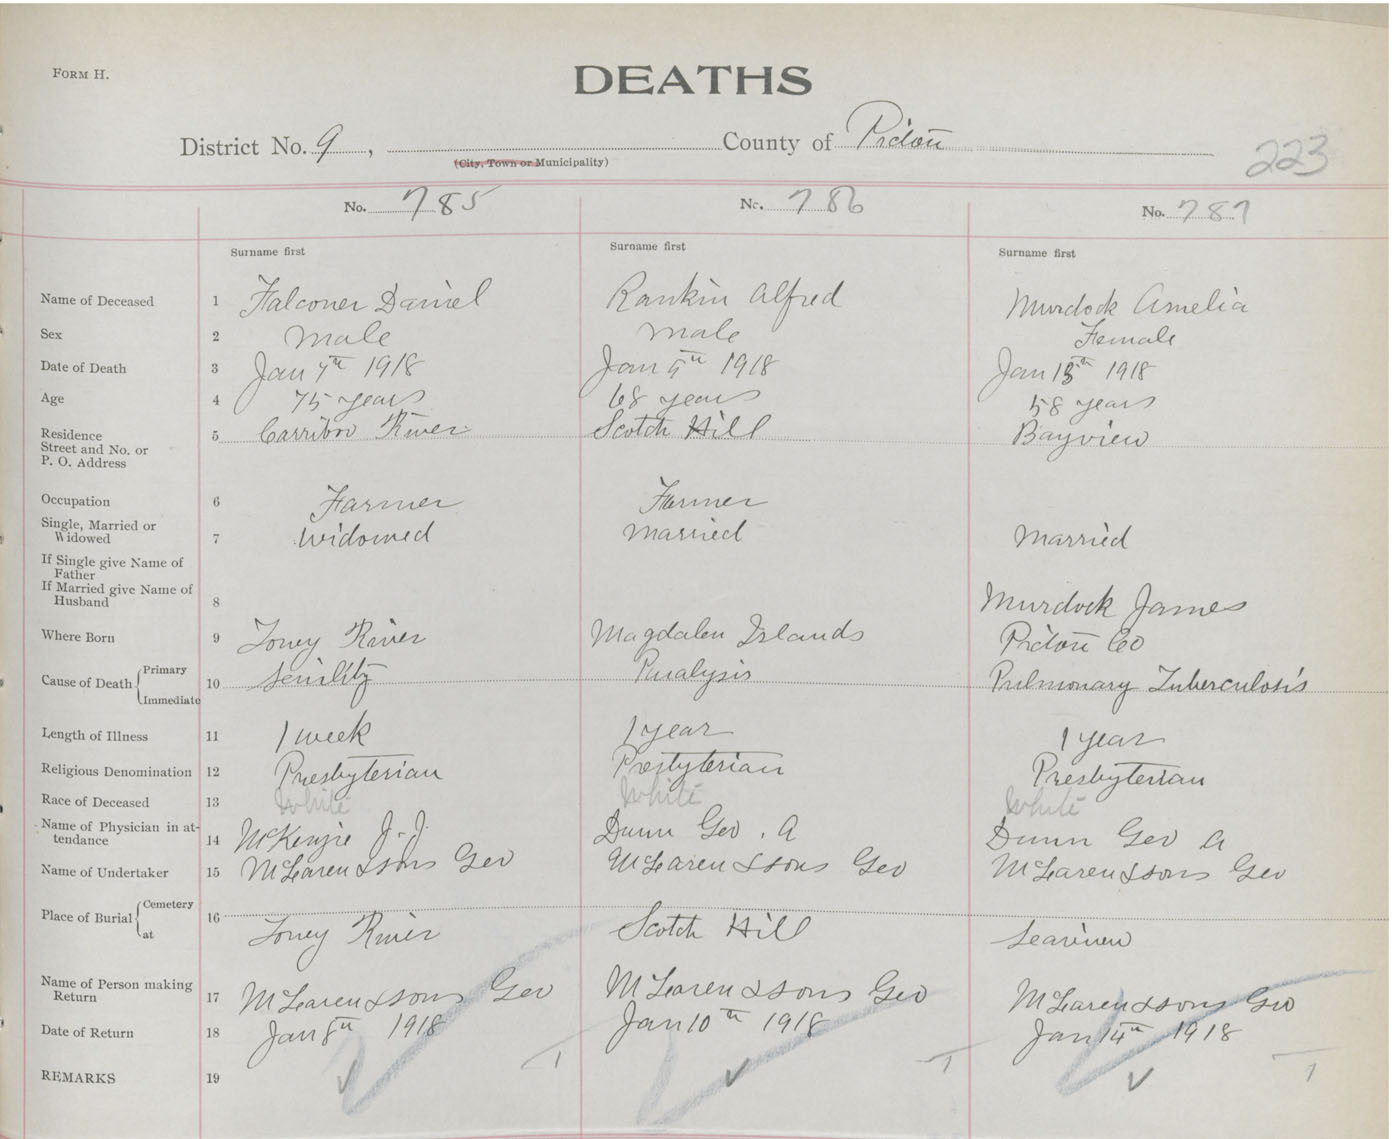 FORM H.
DEATHS
District No. 9, County of Pictou
(City, Town or Municipality)
223
No. 785 No. 786 No. 787
Surname first Surname first Surname first
Name of Deceased 1 Falconer Daniel Rankin Alfred Murdock Amelia
Sex 2 Male Male Female
Date of Death 3 Jan 7th 1918 Jan 9th 1918 Jan 13th 1918
Age 4 75 years 68 years 58 years
Residence 5 Carriboo River Scotch Hill Bayview
Street and No. or
P. O. Address
Occupation 6 Farmer Farmer
Single, Married or
Widowed 7 Widowed Married Married
If Single give Name of
Father
If Married give Name of
Husband 8 Murdock James
Where Born 9 Toney River Magdalen Islands Pictou Co
Cause of Death { Primary
Immediate 10 Senility Paralysis Pulmonary Tuberculosis
Length of Illness 11 1 week 1 year 1 year
Religious Denomination 12 Presbyterian Presbyterian Presbyterian
Race of Deceased 13 White White White
Name of Physician in at-
tendance 14 McKenzie J. J. Dunn Geo. A Dunn Geo A
Name of Undertaker 15 McLaren & sons Geo McLaren & sons Geo McLaren & sons Geo
Place of Burial { Cemetery
at 16 Toney River Scotch Hill Seaview
Name of Person making
Return 17 McLaren & sons Geo McLaren & sons Geo McLaren & sons Geo
Date of Return 18 Jan 8th 1918 Jan 10th 1918 Jan 14th 1918
REMARKS 19